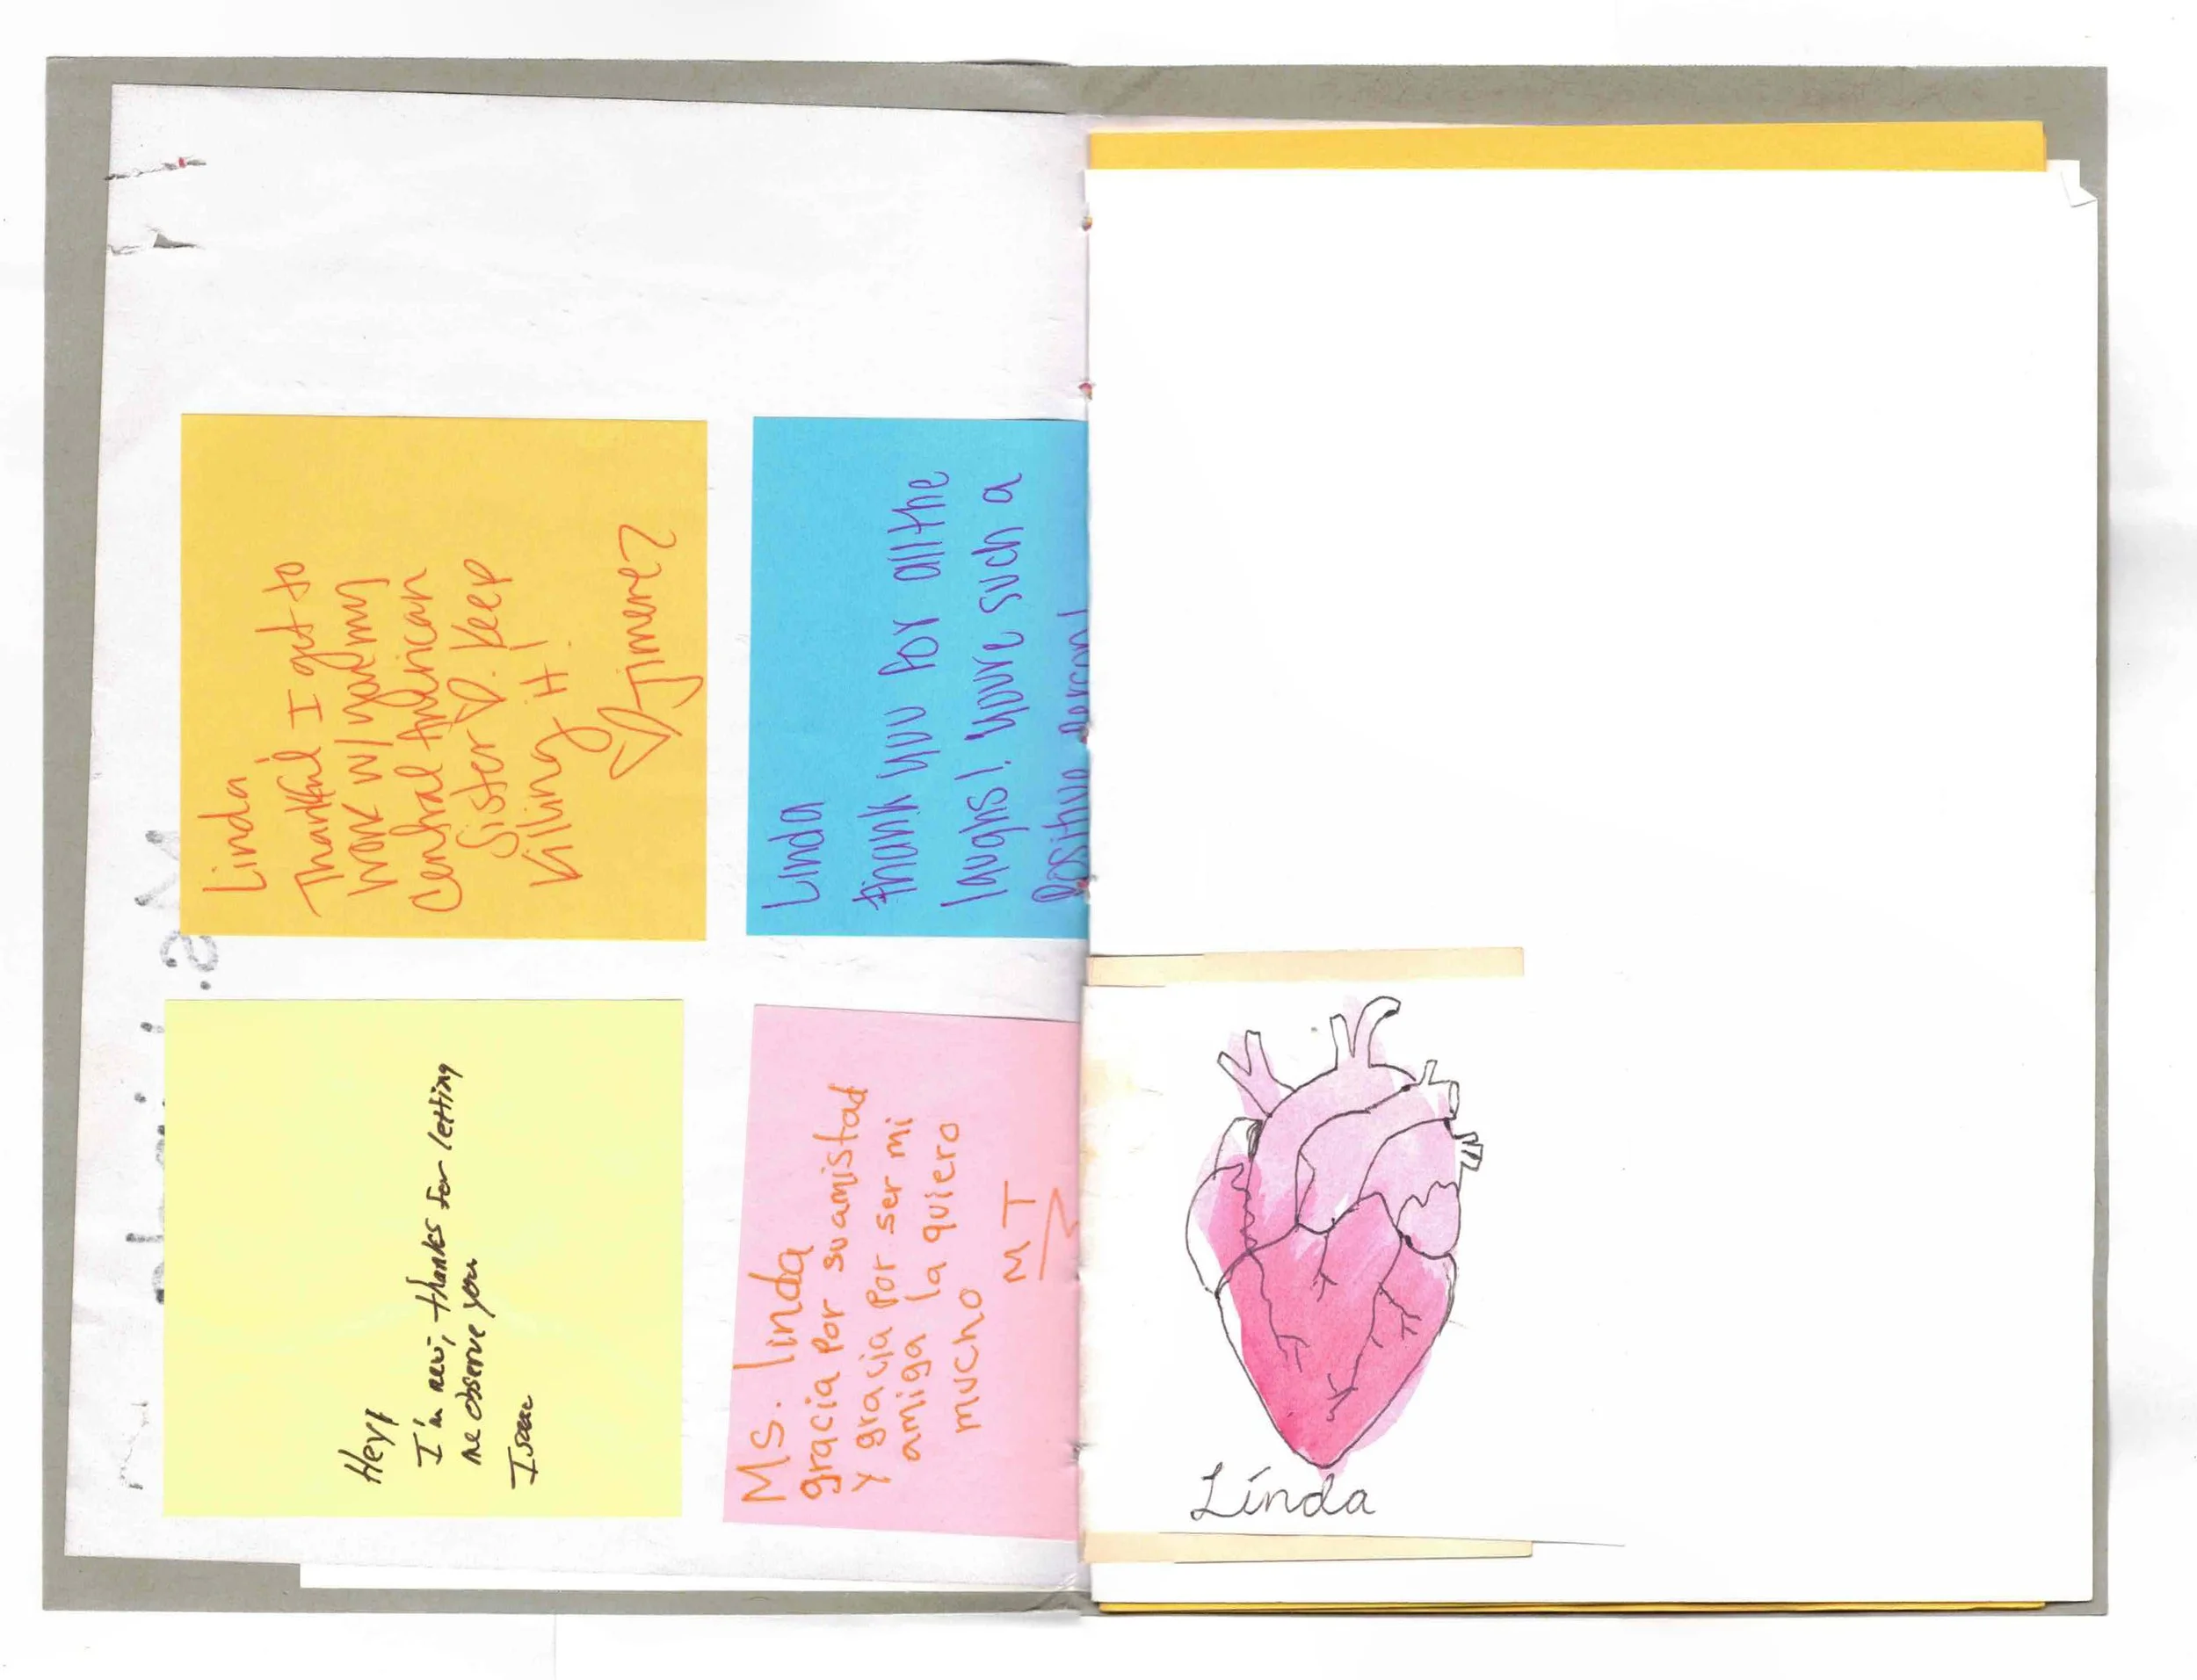 Linda
Thankful I get to
work w/ you my
Central American
Sister ♡. Keep
Killing it!
♡ Jimenez
Linda
thank you for all the
laughs! youre such a
Positive person!
Hey!
I'm new, thanks for letting
me observe you
Isaac
Ms. linda
gracia por su amistad
y gracia por ser mi
amiga la quiero
mucho
MT
Linda